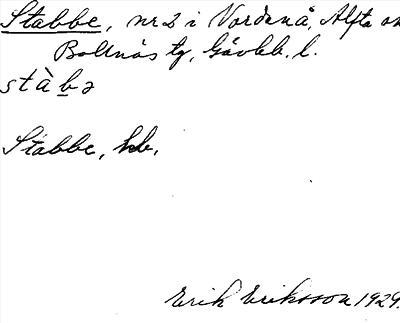 Stabbe, nr 2 i Vordnå, Alfta sn
Bollnäs tg, Gävleb. l.
stàbə
Stabbe, hb.
Erik Eriksson 1929.